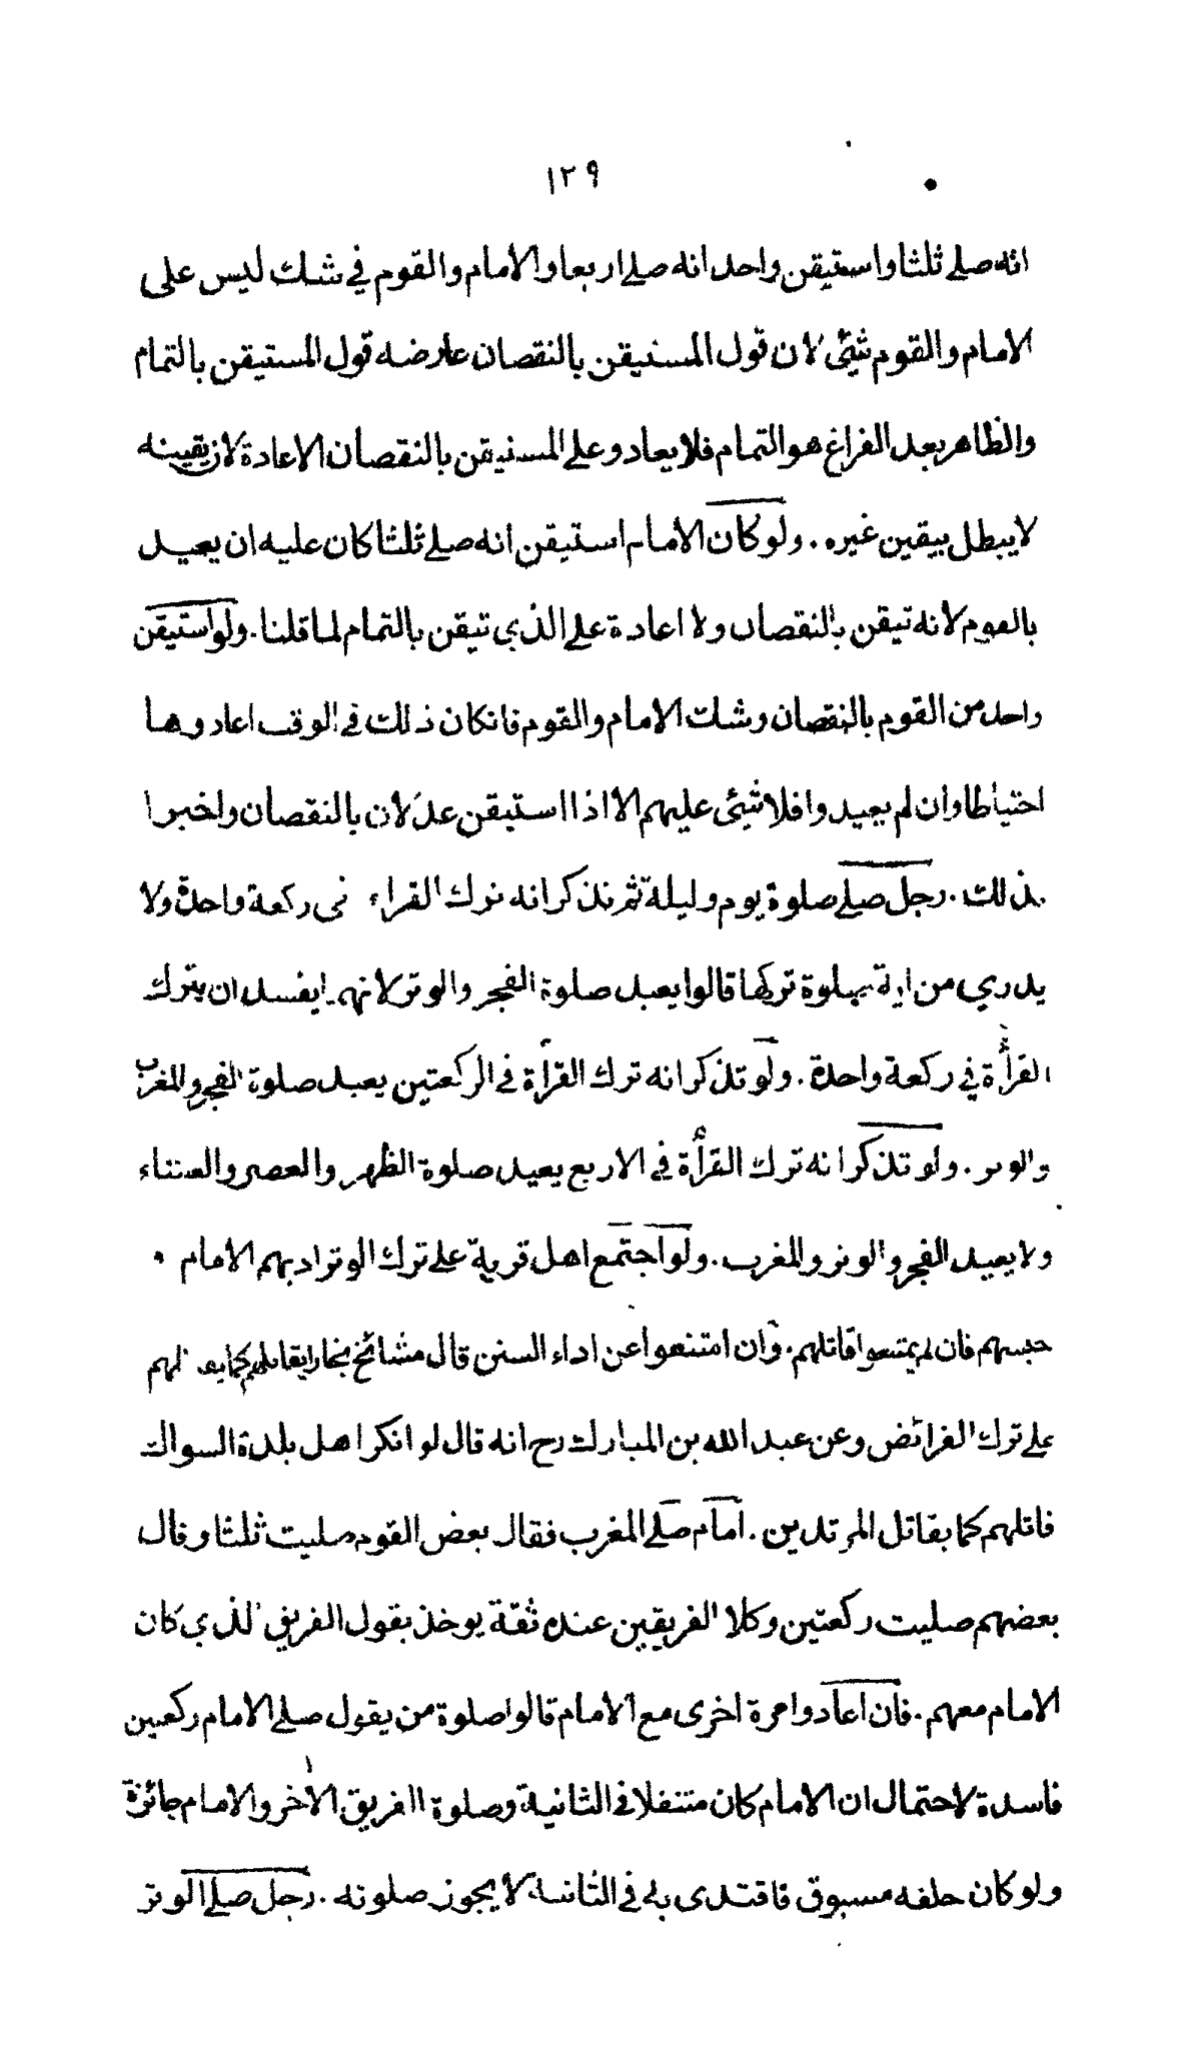 ١٢٩
انه صلے ثلثا واستيقن واحد انه صلے اربعا والامام والقوم في شك ليس على
الامام والقوم شيئ لان قول المستيقن بالنقصان عارضه قول المستيقن بالتمام
والظاهر بعد الفراغ هو التمام فلا يعاد وعلى المستيقن بالنقصان الاعادة لان يقينه
لا يبطل بيقين غيره . ولو كان الامام استيقن انه صلے ثلثا كان عليه ان يعيد
بالقوم لانه تيقن بالنقصان ولا اعادة على الذي تيقن بالتمام لما قلنا . ولو استيقن
واحد من القوم بالنقصان وشك الامام والقوم فانكان ذلك في الوقت اعادوها
احتياطا وان لم يعيدوا فلا شيئ عليهم الا اذا استيقن عدلان بالنقصان واخبروا
بذلك . رجل صلے صلوة يوم وليلة ثم تذكر انه ترك القراء في ركعة واحدة ولا
يدري من اية صلوة تركها قالوا يعيد صلوة الفجر والوتر لانهما يفسدان بترك
القرأة في ركعة واحدة . ولو تذكر انه ترك القرأة في الركعتين يعيد صلوة الفجر والمغرب
والوتر . ولو تذكر انه ترك القرأة في الاربع يعيد صلوة الظهر والعصر والعشاء
ولا يعيد الفجر والوتر والمغرب . ولو اجتمع اهل قرية على ترك الوتر ادبهم الامام
حبسهم فان لم يمتنعوا قاتلهم . وان امتنعوا عن اداء السنن قال مشائخ بخارا يقاتلهم كما يقاتلهم
على ترك الفرائض وعن عبد الله بن المبارك رح انه قال لو انكر اهل بلدة السواك
قاتلهم كما يقاتل المرتدين . امام صلے المغرب فقال بعض القوم صليت ثلثا وقال
بعضهم صليت ركعتين وكلا الفريقين عنده ثقة يوخذ بقول الفريق الذي كان
الامام معهم . فان اعادوا مرة اخرى مع الامام قالوا صلوة من يقول صلے الامام ركعتين
فاسدة لاحتمال ان الامام كان متنفلا في الثانية وصلوة الفريق الاخر والامام جائزة
ولو كان خلفه مسبوق فاقتدى به في الثانية لا يجوز صلوته . رجل صلے الوتر